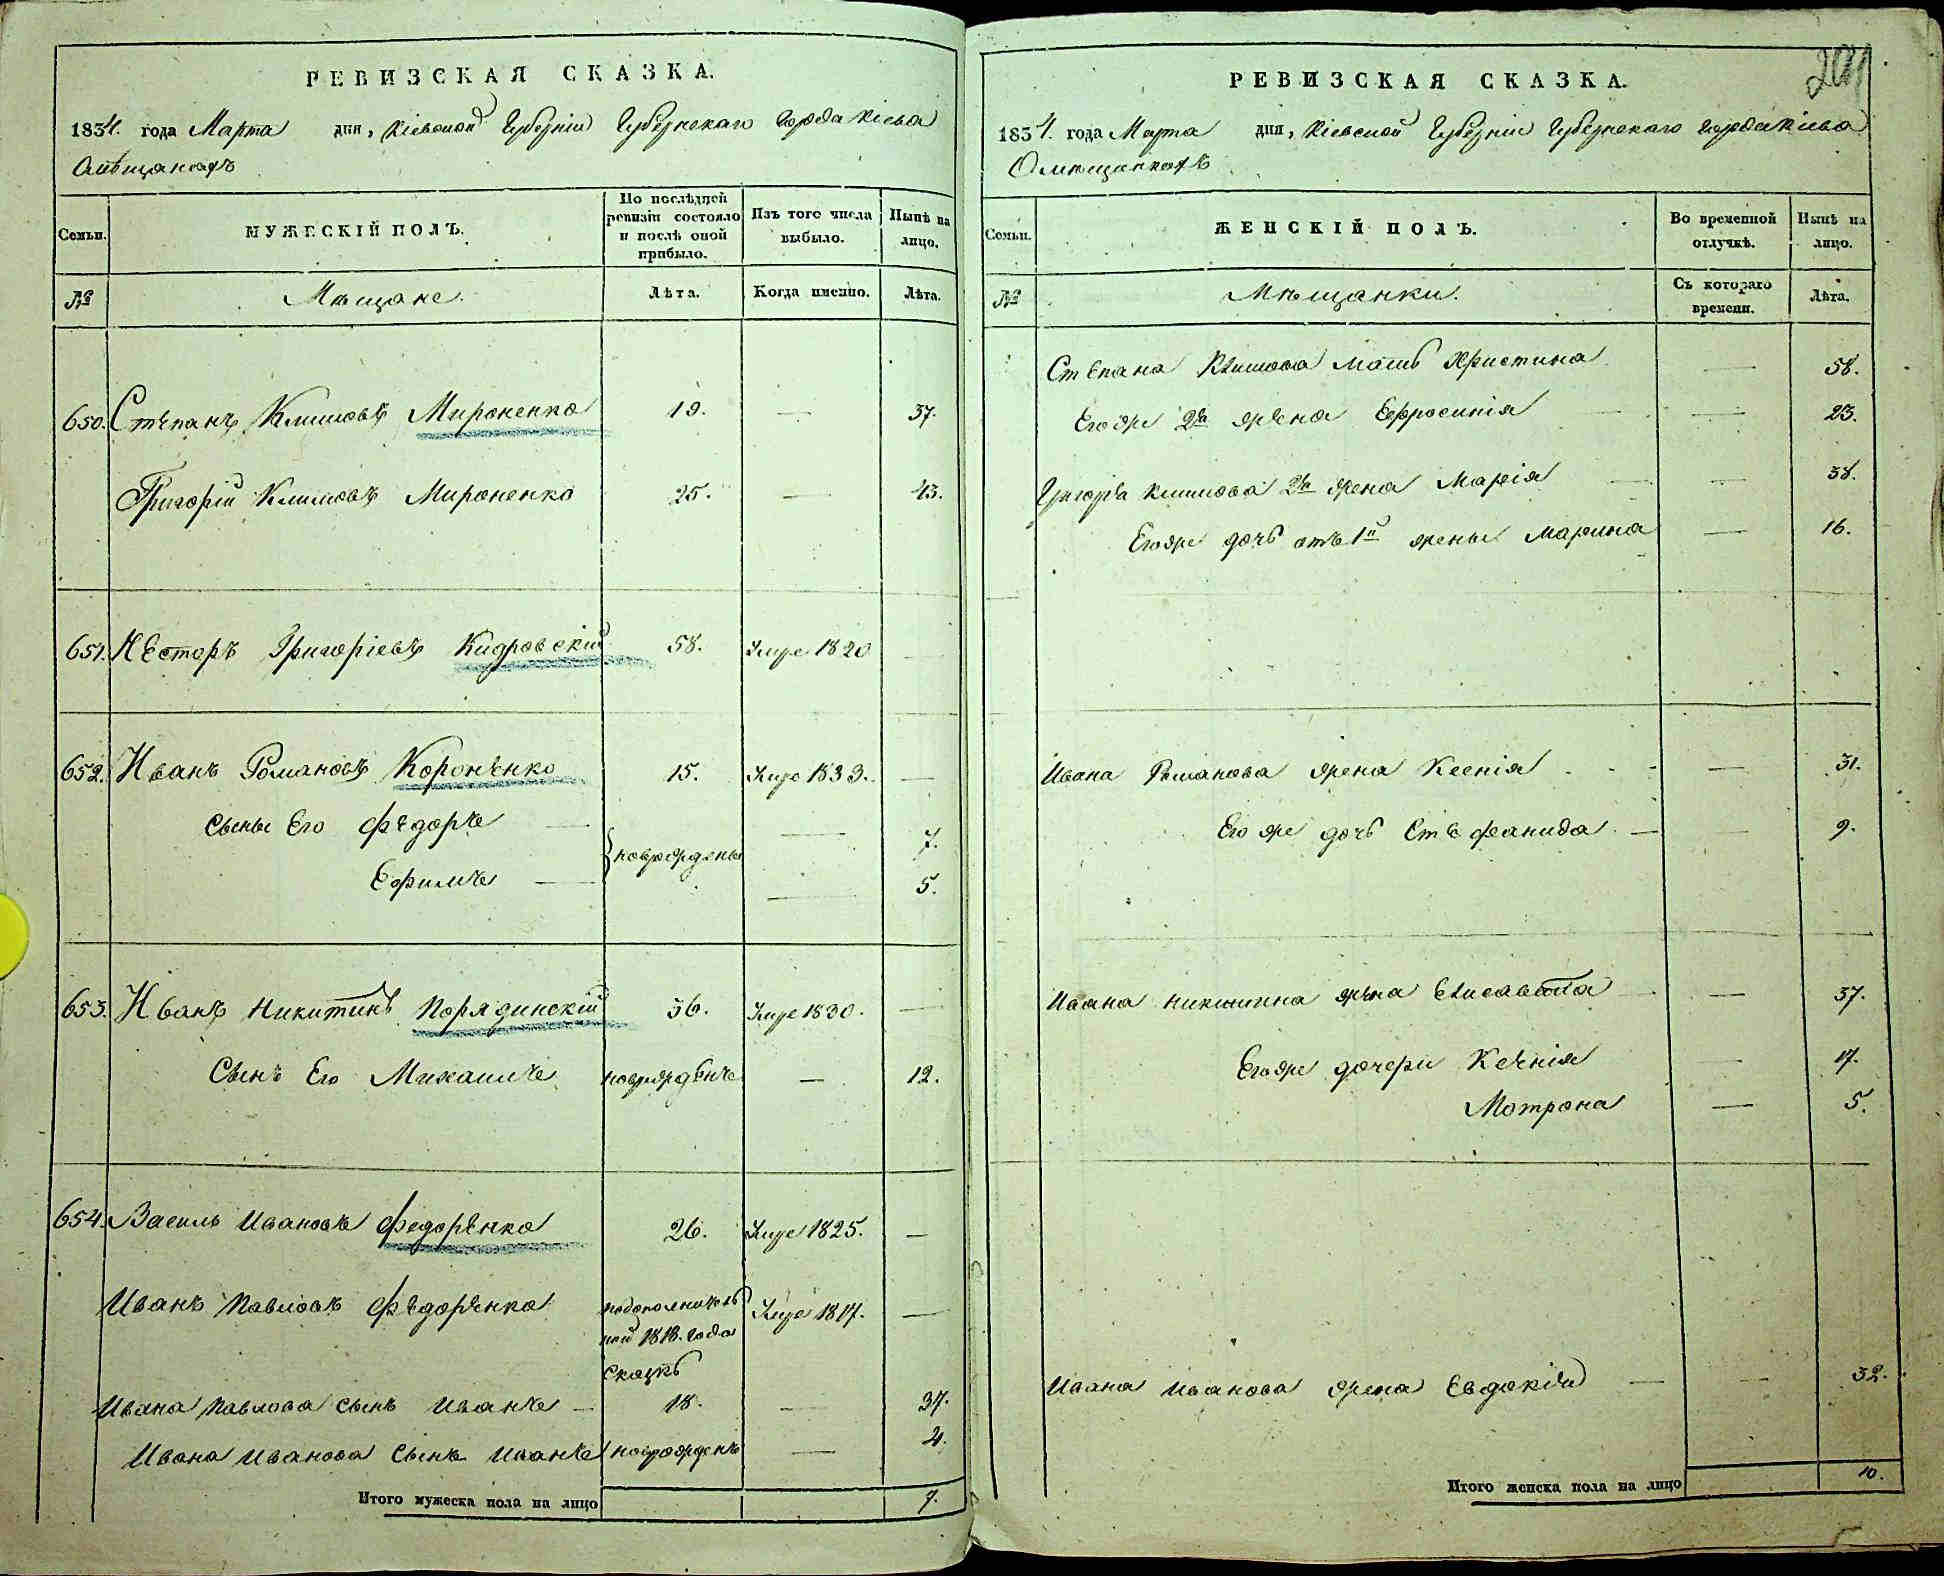 РЕВИЗСКАЯ СКАЗКА.
1834. года Марта дня, Кіевской Губерніи Губернскаго города Кіева
О мѣщанахъ
Семьи.
МУЖЕСКІЙ ПОЛЪ.
По послѣдней ревизіи состояло и послѣ оной прибыло.
Изъ того числа выбыло.
Нынѣ на лицо.
№
Мѣщане.
Лѣта.
Когда именно.
Лѣта.
650. Степанъ Климовъ Мироненко 19. — 37.
Григорій Климовъ Мироненко 25. — 43.
651. Несторъ Григоріевъ Кидровскій 58. Умре 1820 —
652. Иванъ Романовъ Короненко 15. Умре 1833. —
Сыны Его Федоръ — 7.
новрожденны
Ефимъ — 5.
653. Иванъ Никитинъ Порядинскій 36. Умре 1830. —
Сынъ Его Михаилъ новрожденъ — 12.
654. Василь Ивановъ Федоренко 26. Умре 1825. —
Иванъ Павловъ Федоренко Умре 1817. —
1818. года
сказкѣ
Ивана Павлова сынъ Иванъ — 18. — 34.
Ивана Иванова Сынъ Иванъ новрожденъ — 4.
Итого мужеска пола на лицо 7.
РЕВИЗСКАЯ СКАЗКА.
1834. года Марта дня, Кіевской Губерніи Губернскаго города Кіева
О мѣщанкахъ
Семьи.
ЖЕНСКІЙ ПОЛЪ.
Во временной отлучкѣ.
Нынѣ на лицо.
№
Мѣщанки.
Съ котораго времени.
Лѣта.
Степана Климова мать Христина — 58.
Его же 2а жена Ефросинія — 23.
Григорія Климова 2а жена Марія — 38.
Его же дочь отъ 1й жены Марина — 16.
Ивана Романова жена Ксенія — 31.
Его же дочь Стефанида — 9.
Ивана Никитина жена Елисавета — 37.
Его же дочери Ксенія — 17.
Мотрона — 5.
Ивана Иванова жена Евдокія — 32.
Итого женска пола на лицо 10.